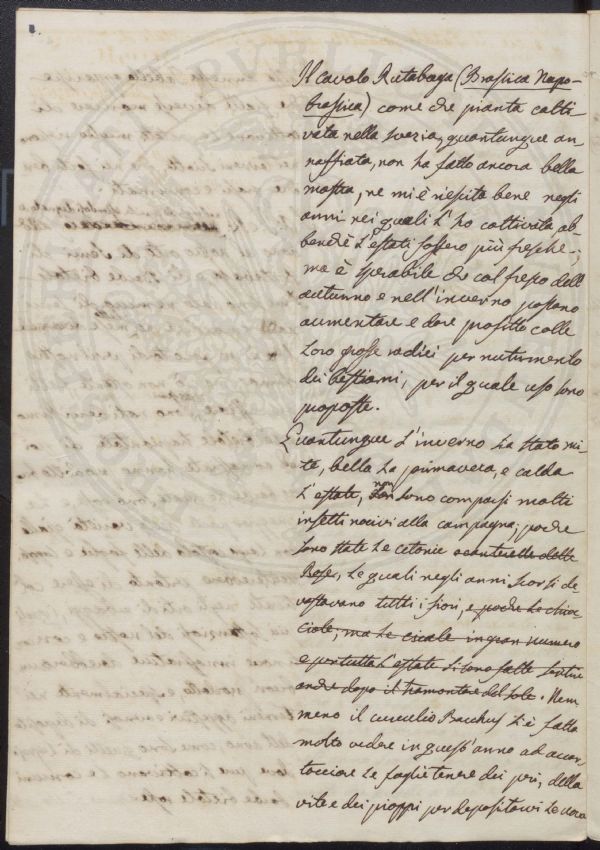 Il cavolo Rutabaga (Brassica Napo-
brassica) come che pianta colti-
vata nella Svezia, quantunque an-
naffiata, non ha fatto ancora bella
mostra, ne mi è riescita bene negli
anni nei quali l'ho coltivata ab-
benchè l'estati fossero più fresche;
ma è sperabile che col fresco dell
autunno e nell'inverno possano
aumentare e dare profitto colle
loro grosse radici per nutrimento
dei bestiami, per il quale uso sono
proposte.
Quantunque l'inverno sia stato mi-
te, bella la primavera, e calda
l'estate, non sono comparsi molti
insetti nocivi alla campagna; poche
sono state le cetonie o canterelle delle
Rose, le quali negli anni scorsi de-
vastavano tutti i fiori, e poche le chioc-
ciole, ma le cicale in gran numero
e per tutta l'estate si sono fatte sentire
anche dopo il tramontare del sole. Nem-
meno il curculio Bacchus si è fatto
molto vedere in quest'anno ad accar-
tocciare le foglie tenere dei peri, della
vite e dei pioppi per depositarvi le uova